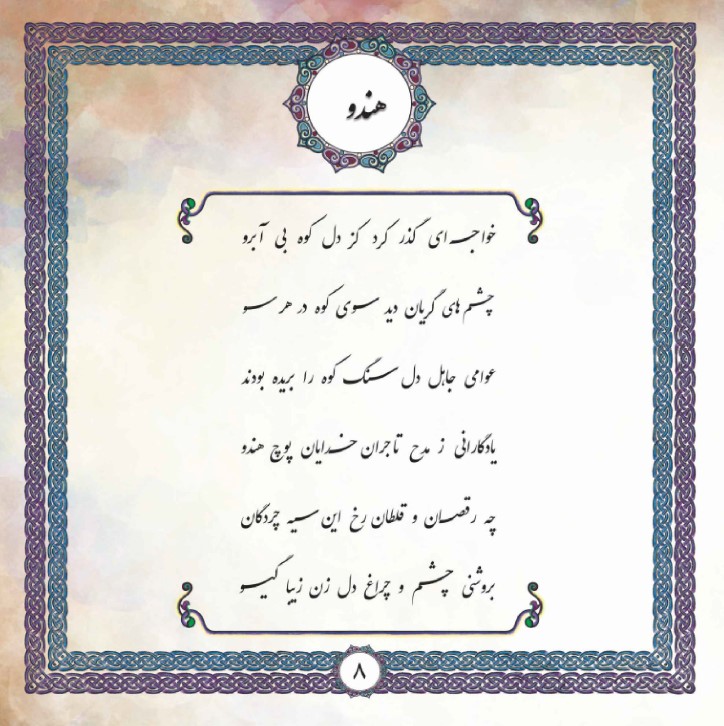 هندو
خواجه ای گذر کرد کز دل کوه بی آبرو
چشم های گریان دید سوی کوه در هر سو
عوامی جاهل دل سنگ کوه را بریده بودند
یادگارانی ز مدح تاجران خدایان پوچ هندو
چه رقصان و قلطان رخ این سیه چردگان
بروشنی چشم و چراغ دل زن زیبا گیسو
۸